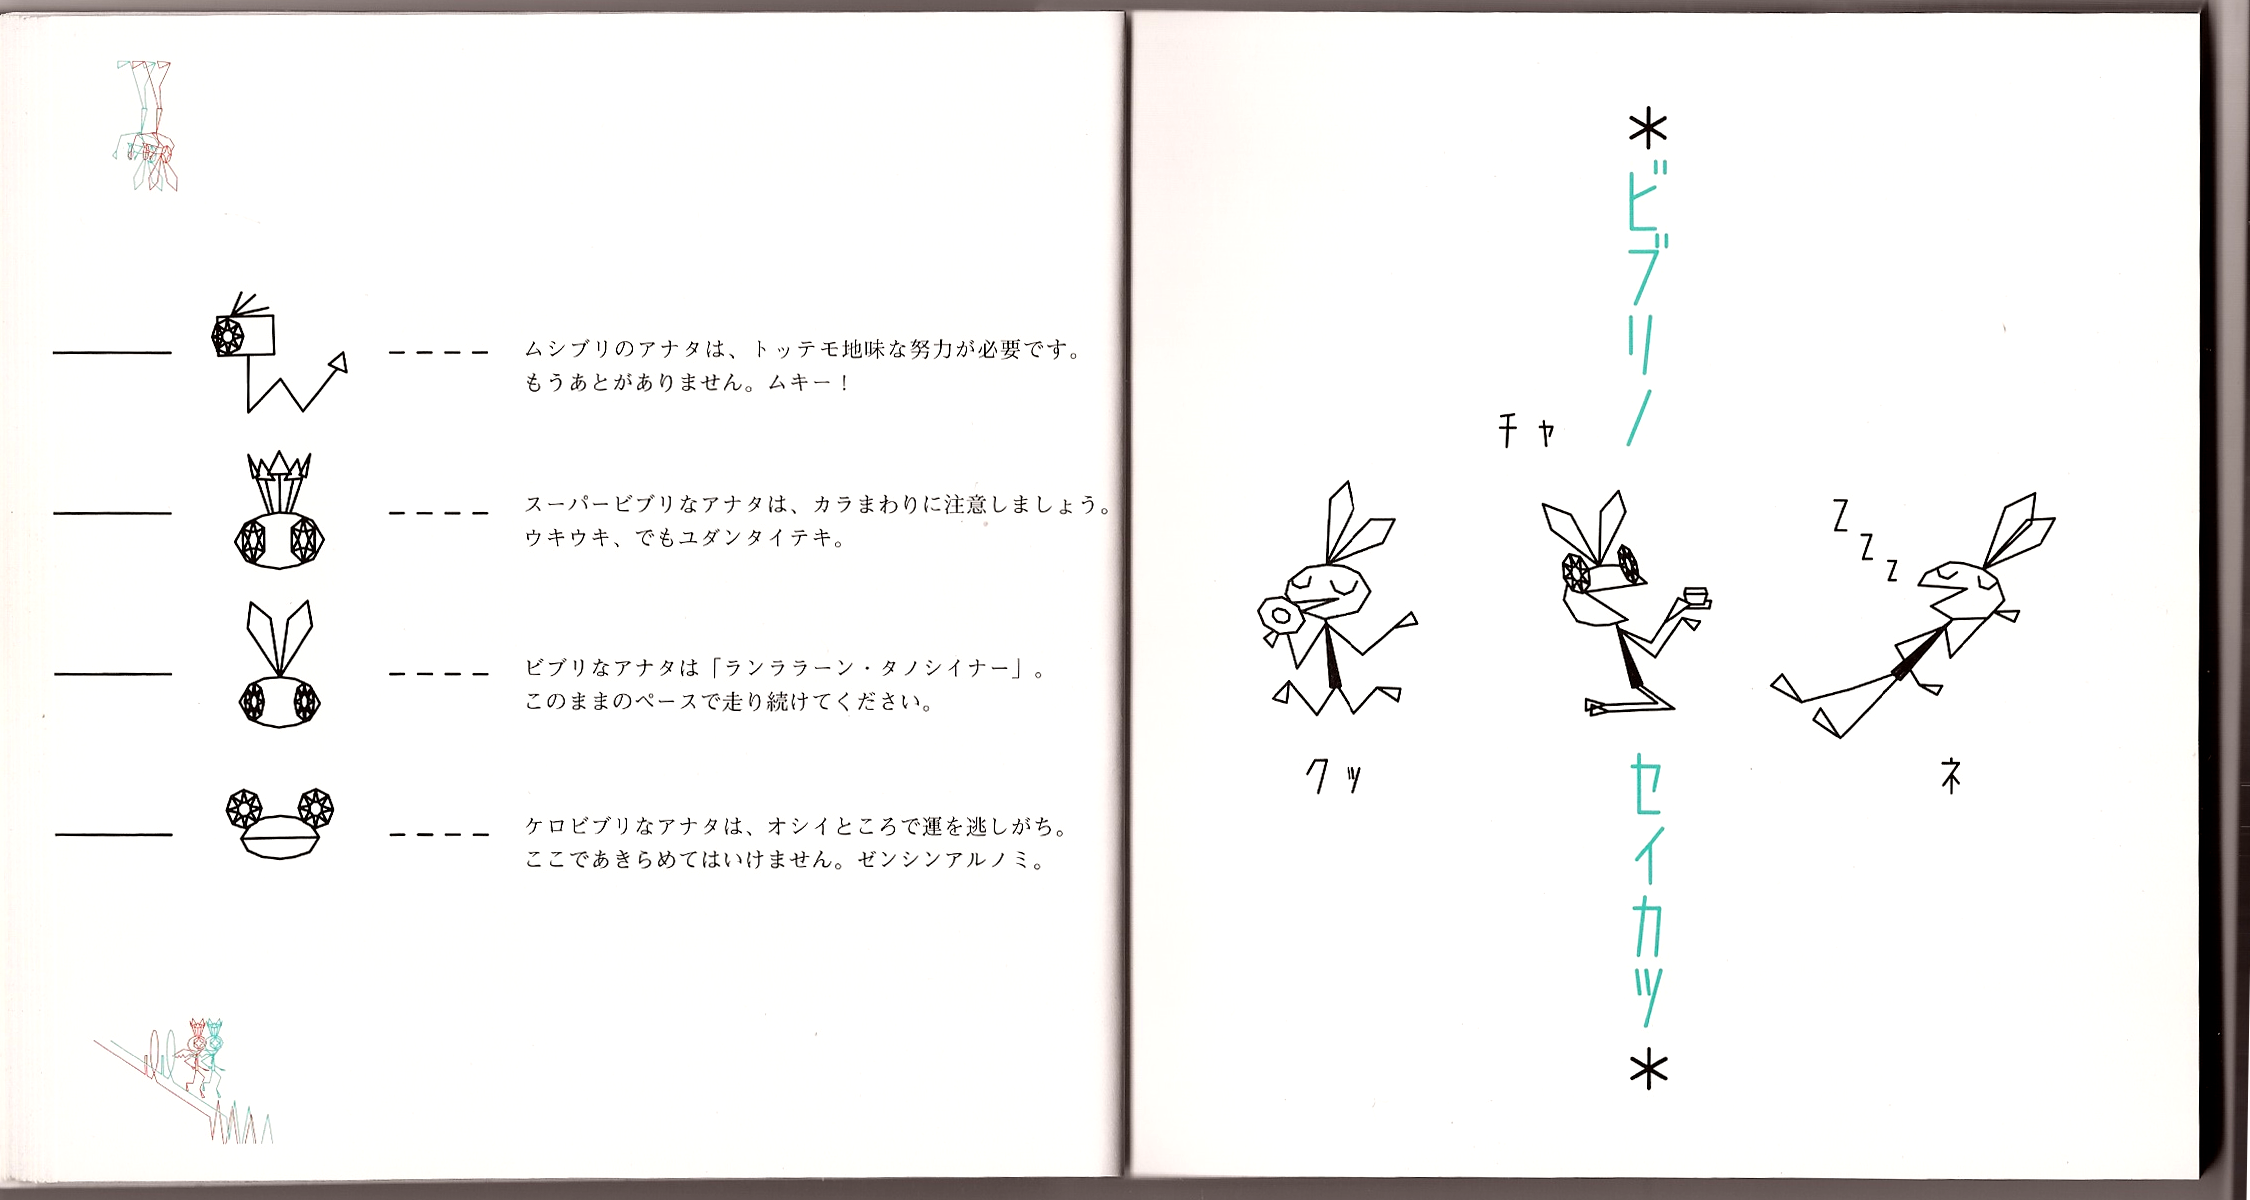 ムシブリのアナタは、トッテモ地味な努力が必要です。
もうあとがありません。ムキー！
スーパービブリなアナタは、カラまわりに注意しましょう。
ウキウキ、でもユダンタイテキ。
ビブリなアナタは「ランララーン・タノシイナー」。
このままのペースで走り続けてください。
ケロビブリなアナタは、オシイところで運を逃しがち。
ここであきらめてはいけません。ゼンシンアルノミ。
*ビブリノ セイカツ*
クッ
チャ
ネ
Z Z Z